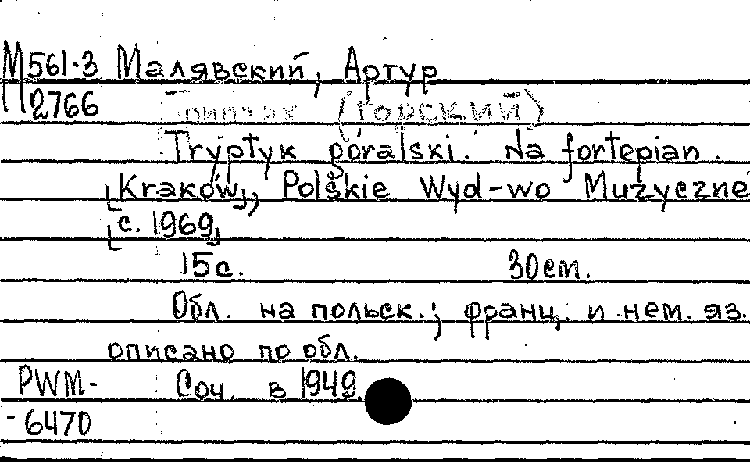 М 561-3 Малявский, Артур
П 2766 Триптих (горский)
Tryptyk góralski. Na fortepian.
[Kraków], Polskie Wyd-wo Muzyczne
[c. 1969]
15 с. 30 см.
Обл. на польск.; франц. и нем. яз.
описано по обл.
PWM- Соч. в 1949.
-6470